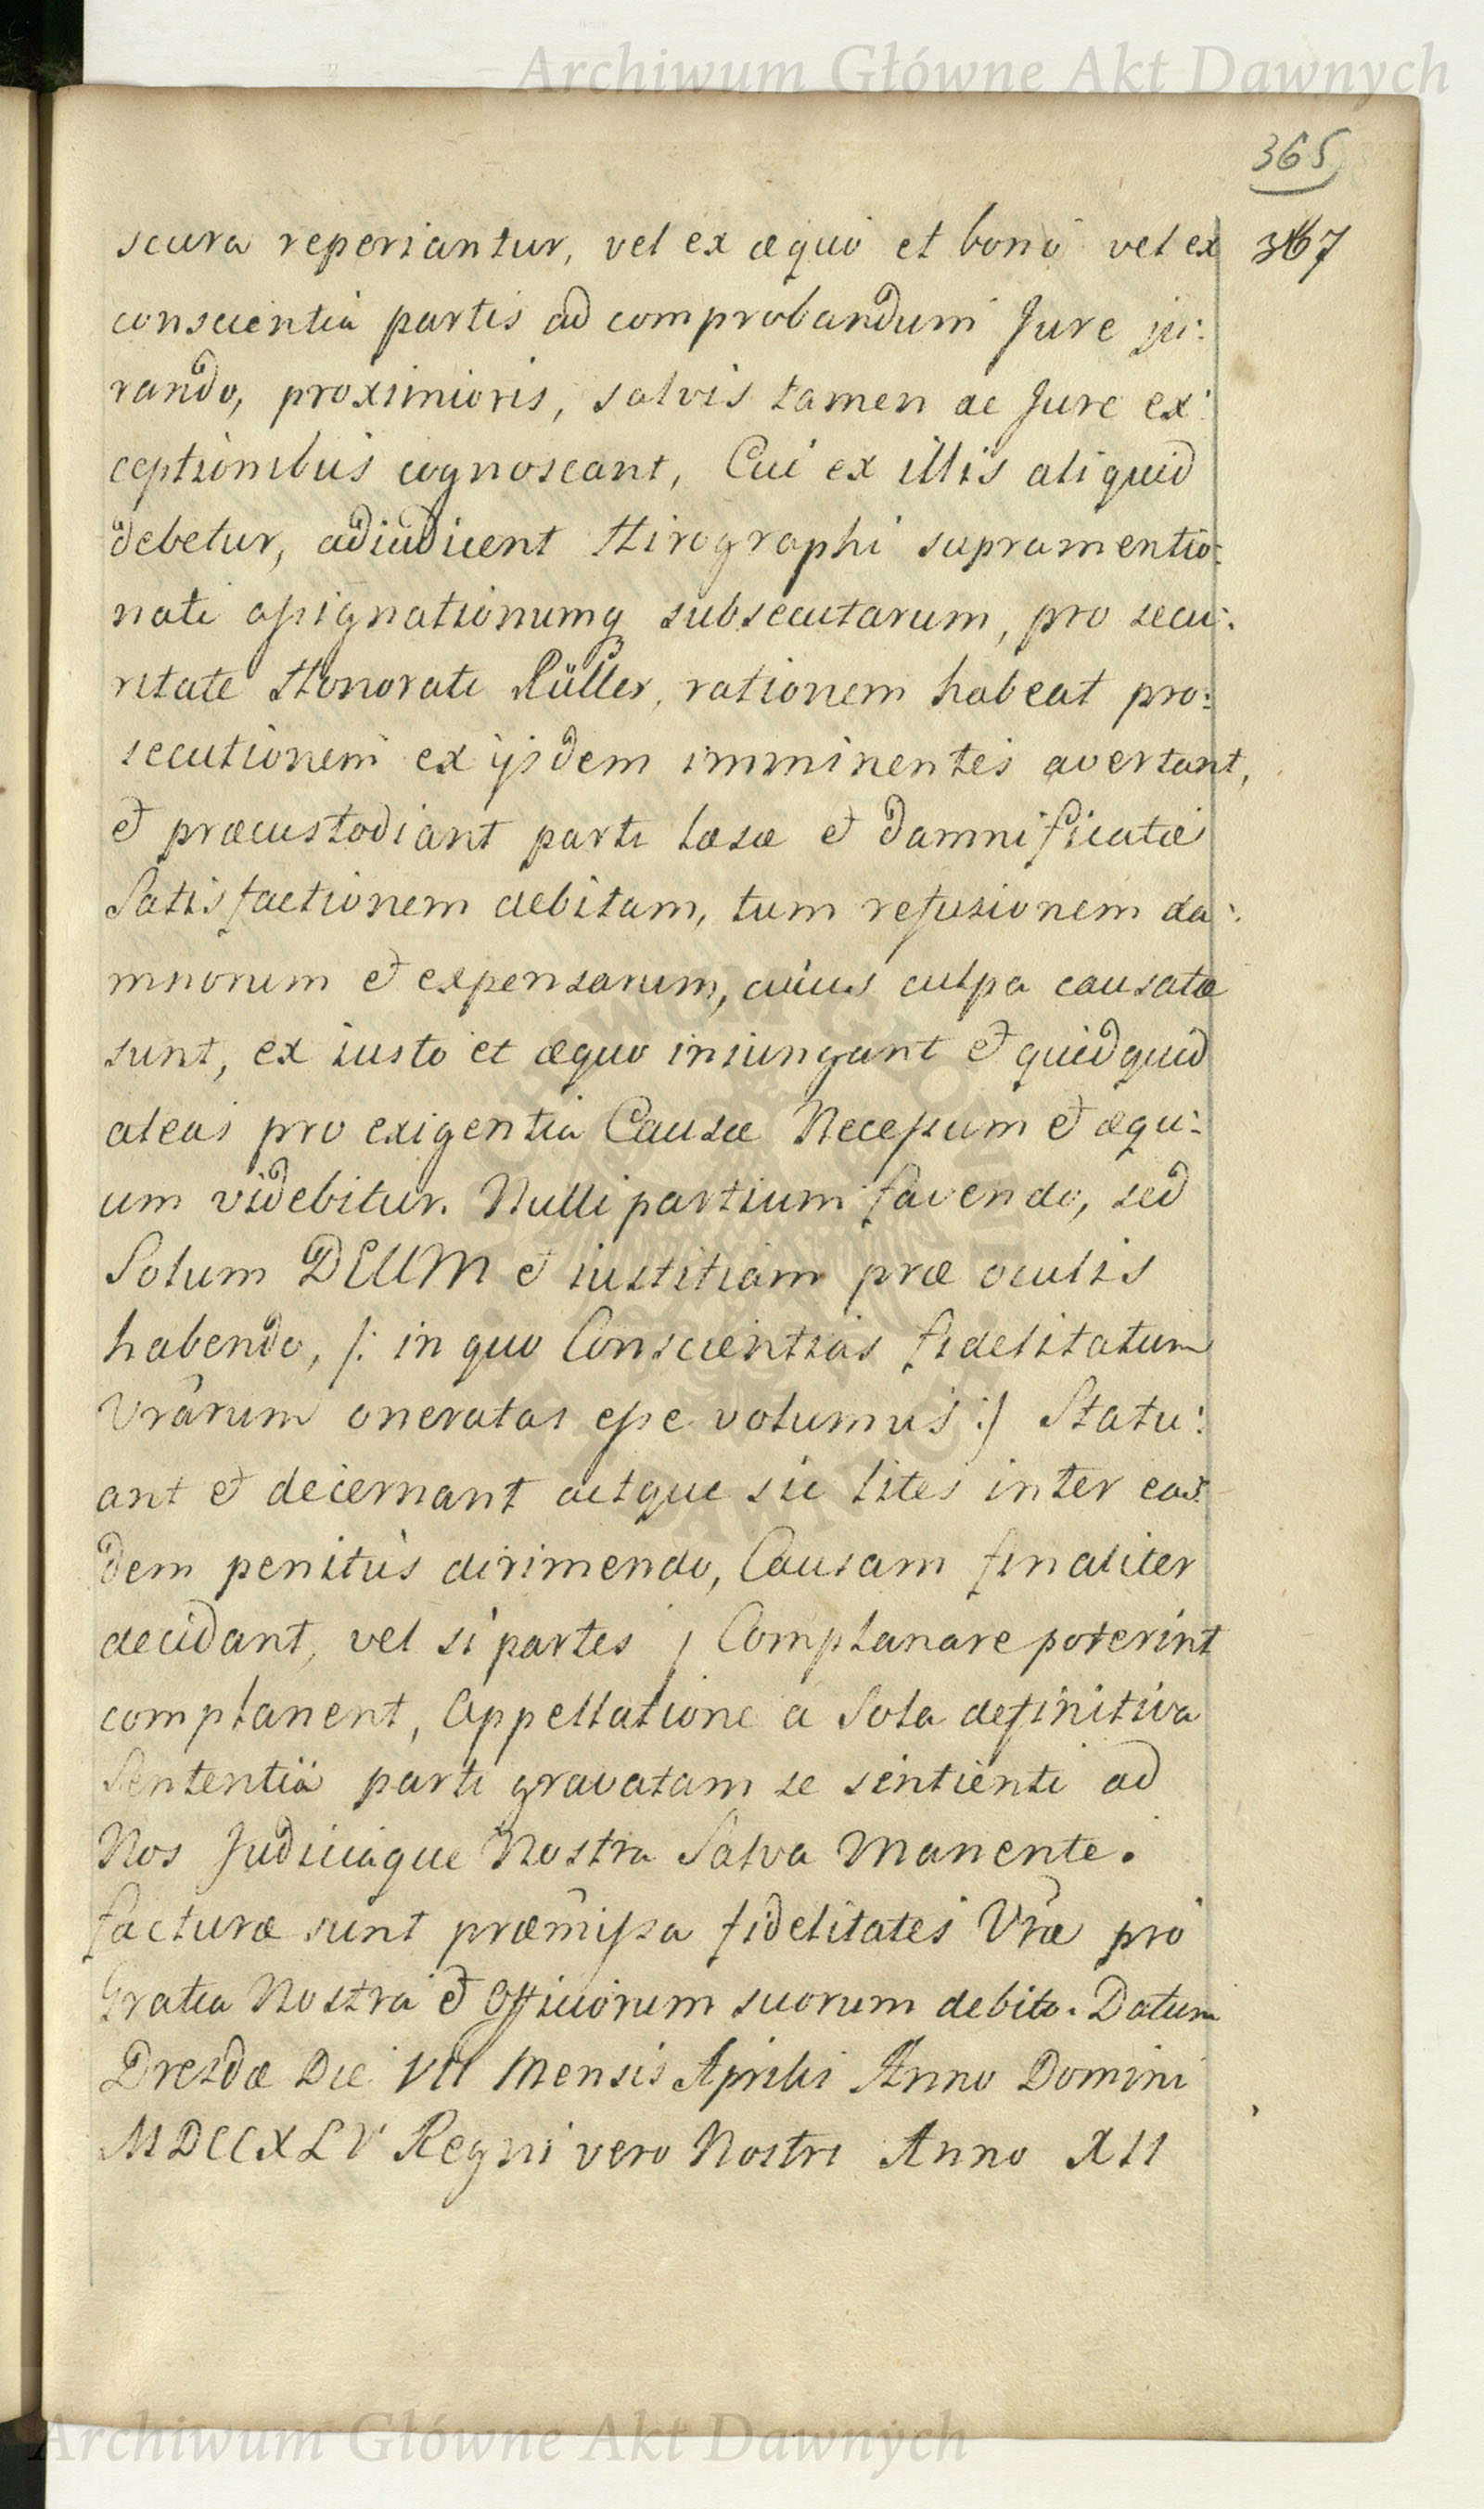 Archiwum Główne Akt Dawnych
365
367
scura reperiantur, vel ex æquo et bono vel ex
conscientia partis ad comprobandum Jure ju:
rando, proximioris, salvis tamen de Jure ex:
ceptionibus cognoscant, Cui ex illis aliquid
debetur, adiudicent Hirographi supramentio:
nati assignationumq subsecutarum, pro secu:
ritate Honorati Rüller, rationem habeat pro:
secutionem ex ijsdem imminentes avertant,
et præcustodiant parti læsæ et damnificatæ
Satisfactionem debitam, tum refusionem da:
mnorum et expensarum, cuius culpa causatæ
sunt, ex iusto et æquo iniungant et quidquid
aleas pro exigentia Causæ Necessum et æqu:
um videbitur. Nulli partium favendo, sed
Solum DEUM et iustitiam præ oculis
habendo, /: in quo Conscientias fidelitatum
Vrârum oneratas esse volumus :/ Statu:
ant et decernant actque sic lites inter eas:
dem penitus dirimendo, Causam finaliter
decidant, vel si partes j Complanare poterint
complanent, Appellatione a Sola definitiva
Sententiâ parti gravatam se sentienti ad
Nos Judiciaque Nostra Salva Manente.
facturæ sunt præmissa fidelitates Vræ pro
Gratia Nostra et Officiorum suorum debito. Datum
Dresdæ Die VII Mensis Aprilis Anno Domini
MDCCXLV Regni vero Nostri Anno XII
Archiwum Główne Akt Dawnych